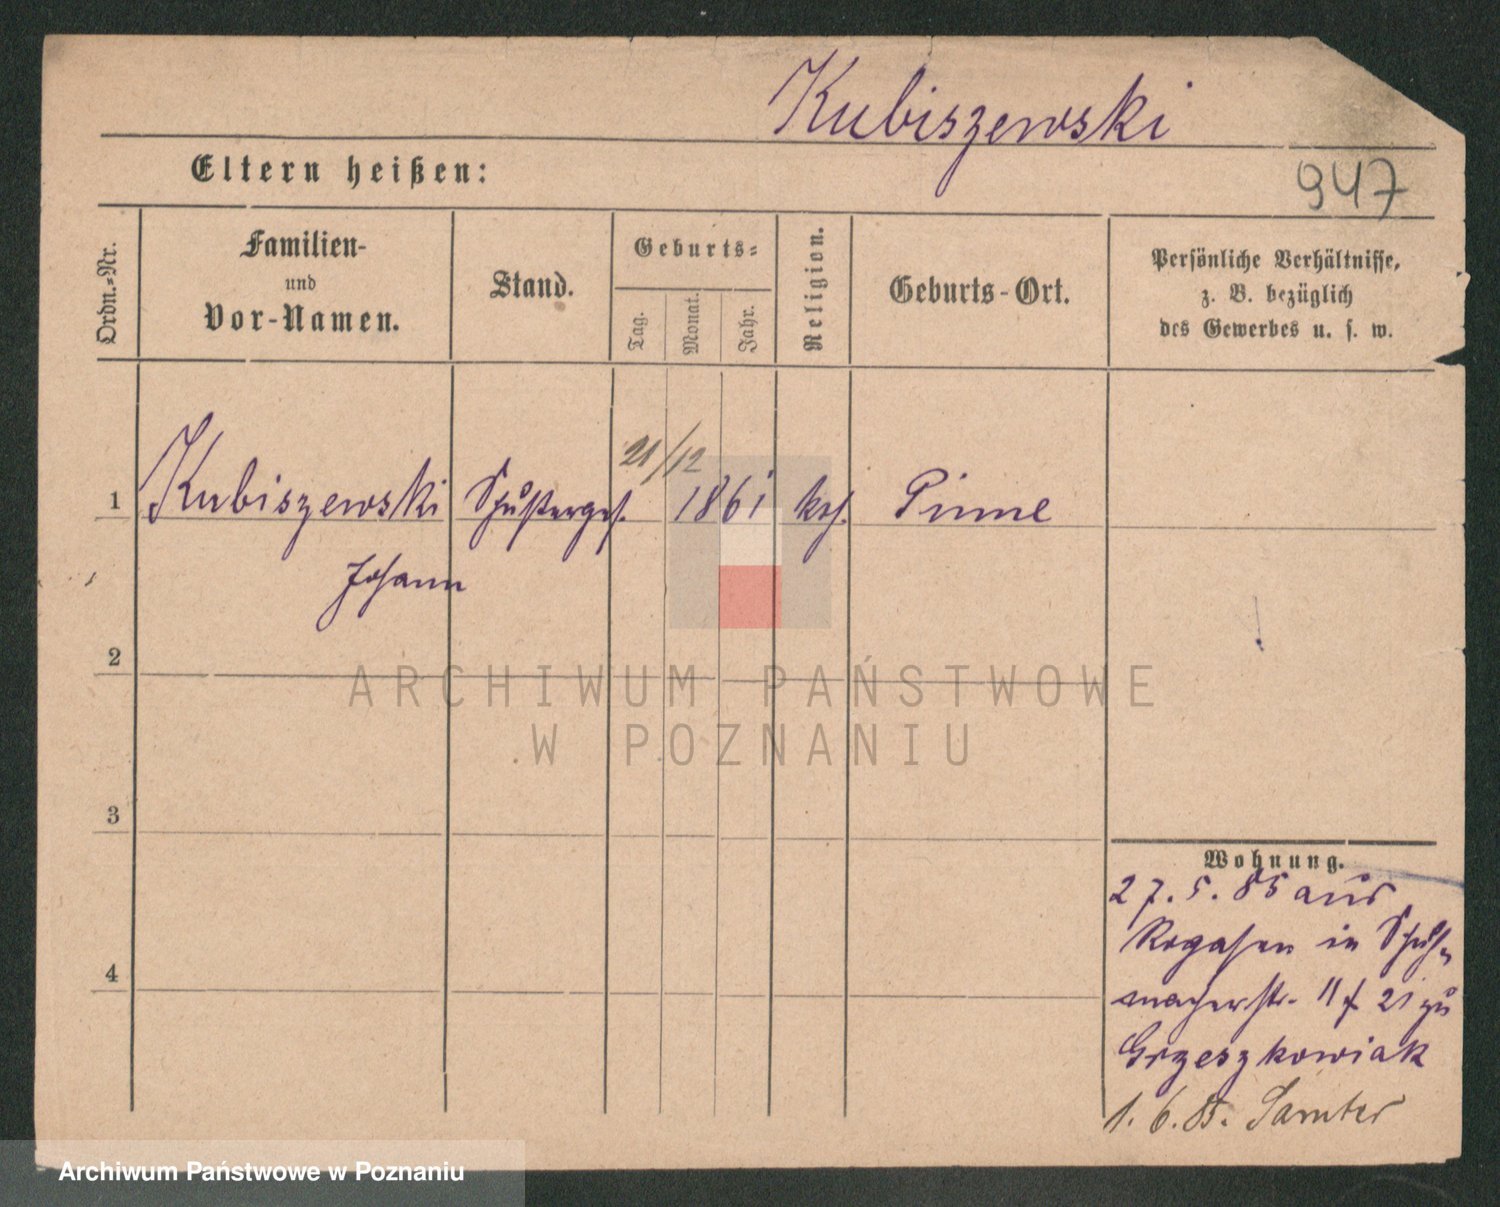 Kubiszewski
Eltern heißen:
947
Ordn.-Nr.
Familien-
und
Vor-Namen.
Stand.
Geburts-
Tag.
Monat.
Jahr.
Religion.
Geburts-Ort.
Persönliche Verhältnisse,
z. B. bezüglich
des Gewerbes u. s. w.
21/12
1 Kubiszewski Schusterges. 1861 kth. Pinne
Johann
2
ARCHIWUM PAŃSTWOWE
W POZNANIU
3
Wohnung.
27.5.85 aus
Rogasen in Schuh-
4
macherstr. 11 f 21 zu
Grzeszkowiak
1.6.85. Samter
Archiwum Państwowe w Poznaniu